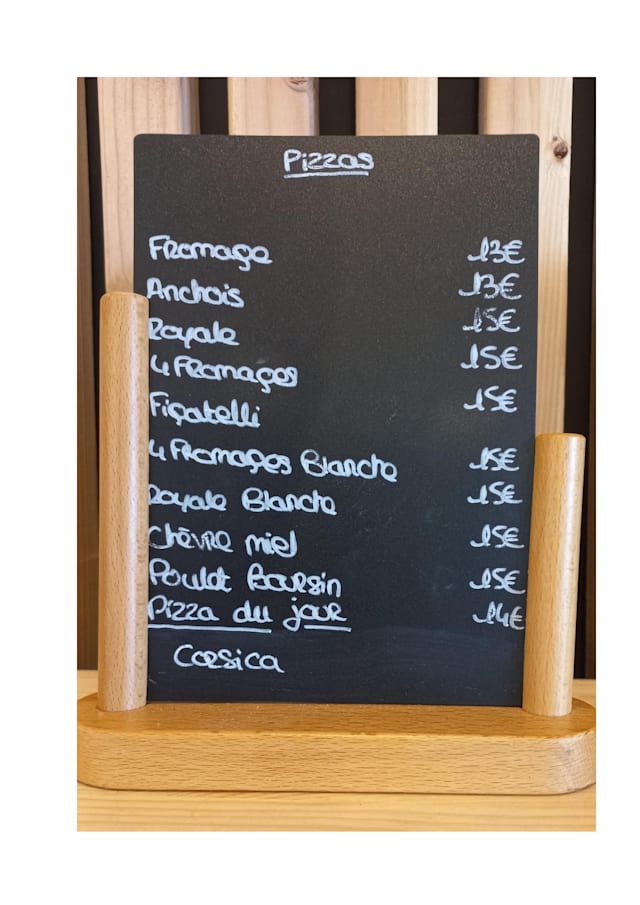 Pizzas
Fromage 13€
Anchois 13€
Royale 15€
4 Fromages 15€
Figatelli 15€
4 Fromages Blanche 15€
Royale Blanche 15€
Chèvre miel 15€
Poulet Boursin 15€
Pizza du jour 14€
Corsica